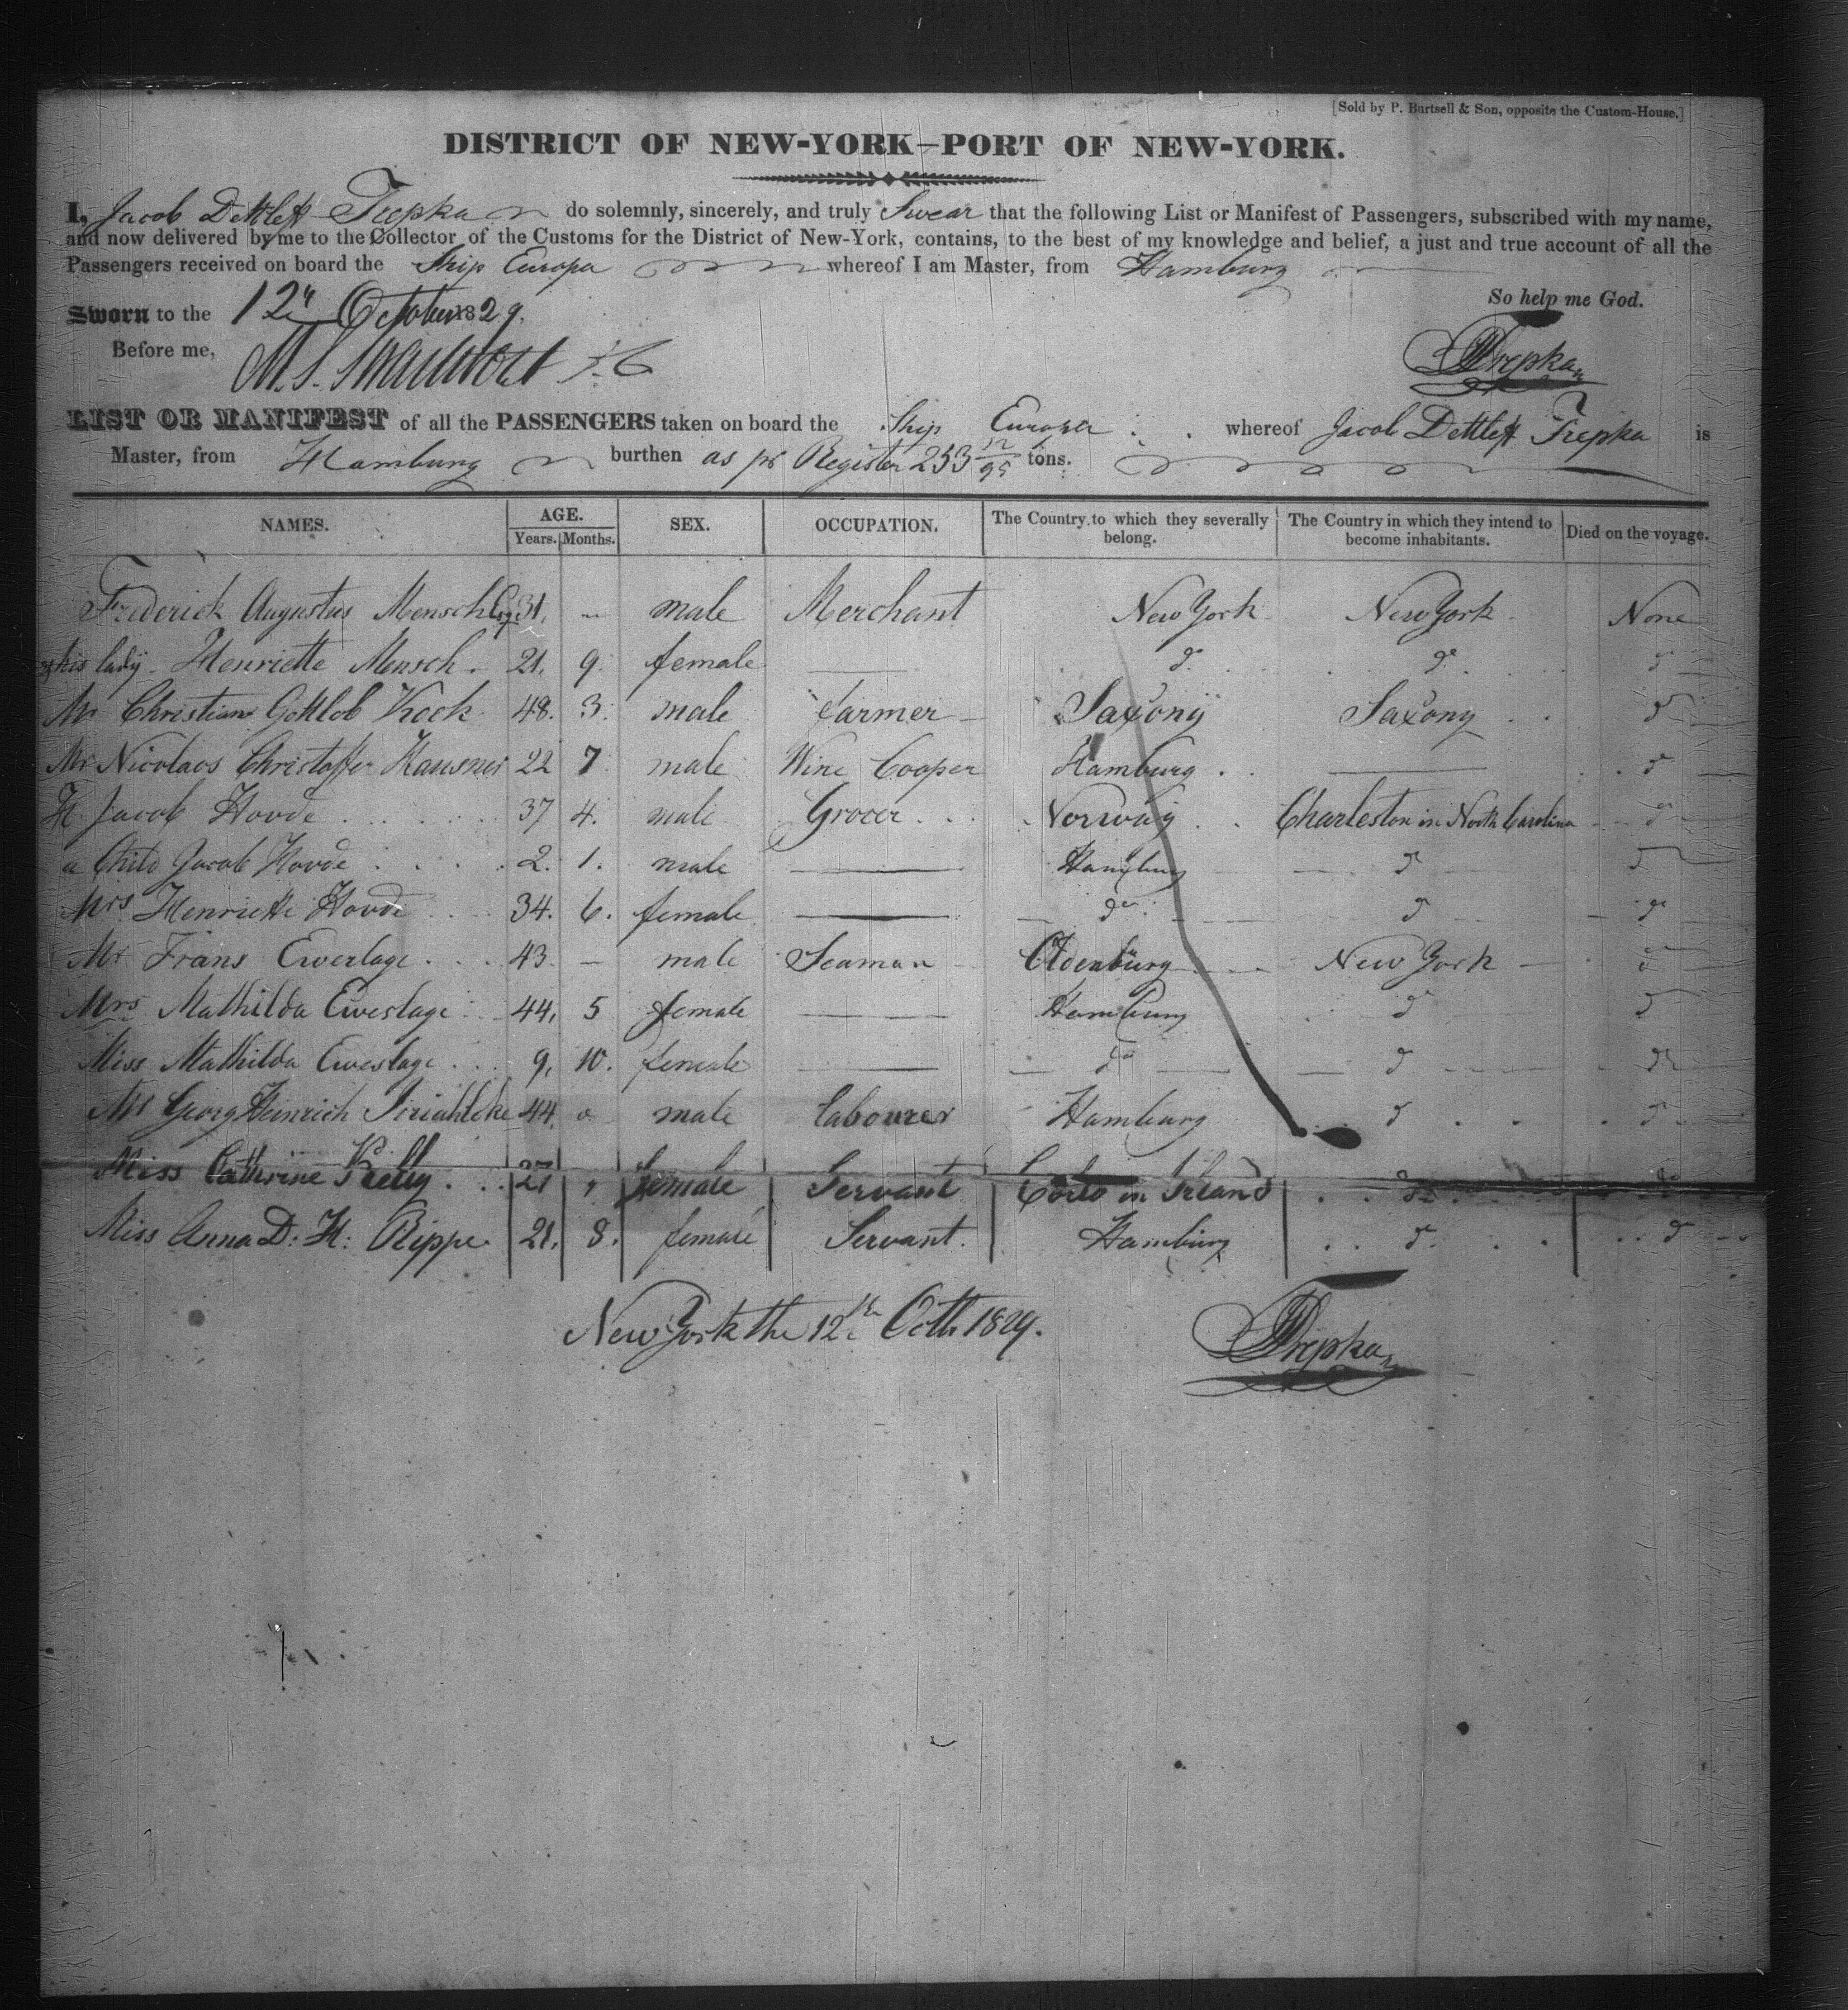 [Sold by P. Burtsell & Son, opposite the Custom-House.]
DISTRICT OF NEW-YORK—PORT OF NEW-YORK.
I, Jacob Dettleff Trepka do solemnly, sincerely, and truly Swear that the following List or Manifest of Passengers, subscribed with my name,
and now delivered by me to the Collector of the Customs for the District of New-York, contains, to the best of my knowledge and belief, a just and true account of all the
Passengers received on board the Ship Europa whereof I am Master, from Hamburg
So help me God.
Sworn to the 12th October 1829.
Before me,
JDTrepka
LIST OR MANIFEST of all the PASSENGERS taken on board the Ship Europa whereof Jacob Dettleff Trepka is
Master, from Hamburg burthen as pr Register 253 /95 tons.
NAMES. AGE. Years. Months. SEX. OCCUPATION. The Country to which they severally belong. The Country in which they intend to become inhabitants. Died on the voyage.
Frederick Augustus Mensch Esq 31. — male Merchant New York New York None
his lady Henriette Mensch. 21. 9. female — do do do
Mr Christian Gottlob Kock 48. 3. male farmer Saxony Saxony do
Mr Nicolaos Christoffer Hausner 22 7 male Wine Cooper Hamburg — do
H. Jacob Hovde 37 4. male Grocer Norway Charleston in North Carolina do
a Child Jacob Hovde 2. 1. male — Hamburg do do
Mrs Henriette Hovde 34. 6. female — do do do
Mr Frans Ewerlage 43. — male Seaman Oldenburg New York do
Mrs Mathilda Ewerlage 44. 5 female — Hamburg do do
Miss Mathilda Ewerlage 9. 10. female — do do do
Mr Georg Heinrich 44. male labourer Hamburg do do
Miss Cathrine Kelly 27 " female Servant in Ireland do do
Miss Anna D. H. Rippe 21. 8. female Servant. Hamburg do do
New York the 12th Octb 1829.
JDTrepka